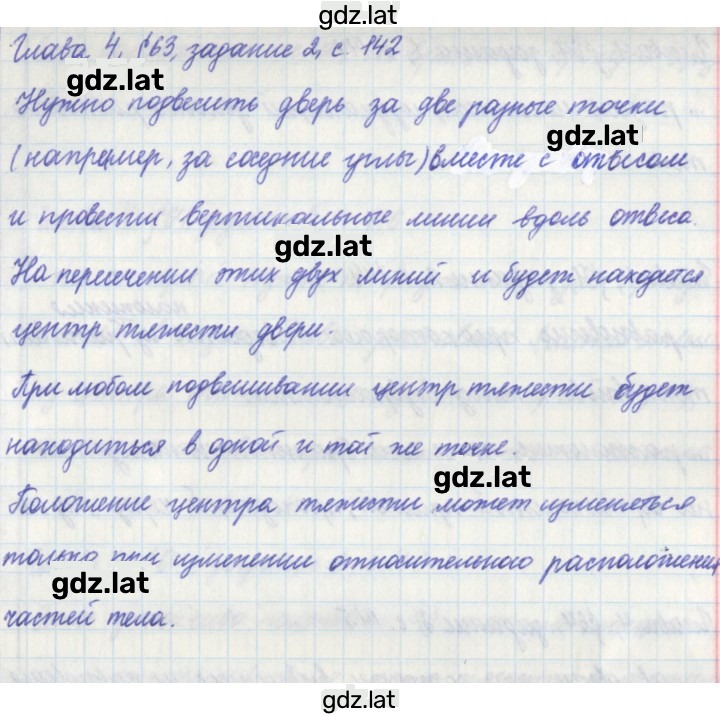 gdz.lat
Глава 4, §63, задание 2, с 142
gdz.lat
Нужно подвесить дверь за две разные точки
gdz.lat
(например, за соседние углы) вместе с отвесом
и провести вертикальные линии вдоль отвеса.
gdz.lat
На пересечении этих двух линий и будет находится
центр тяжести двери.
При любом подвешивании центр тяжести будет
находиться в одной и той же точке.
gdz.lat
Положение центра тяжести может изменяться
только при изменении относительного расположения
gdz.lat
частей тела.
gdz.lat